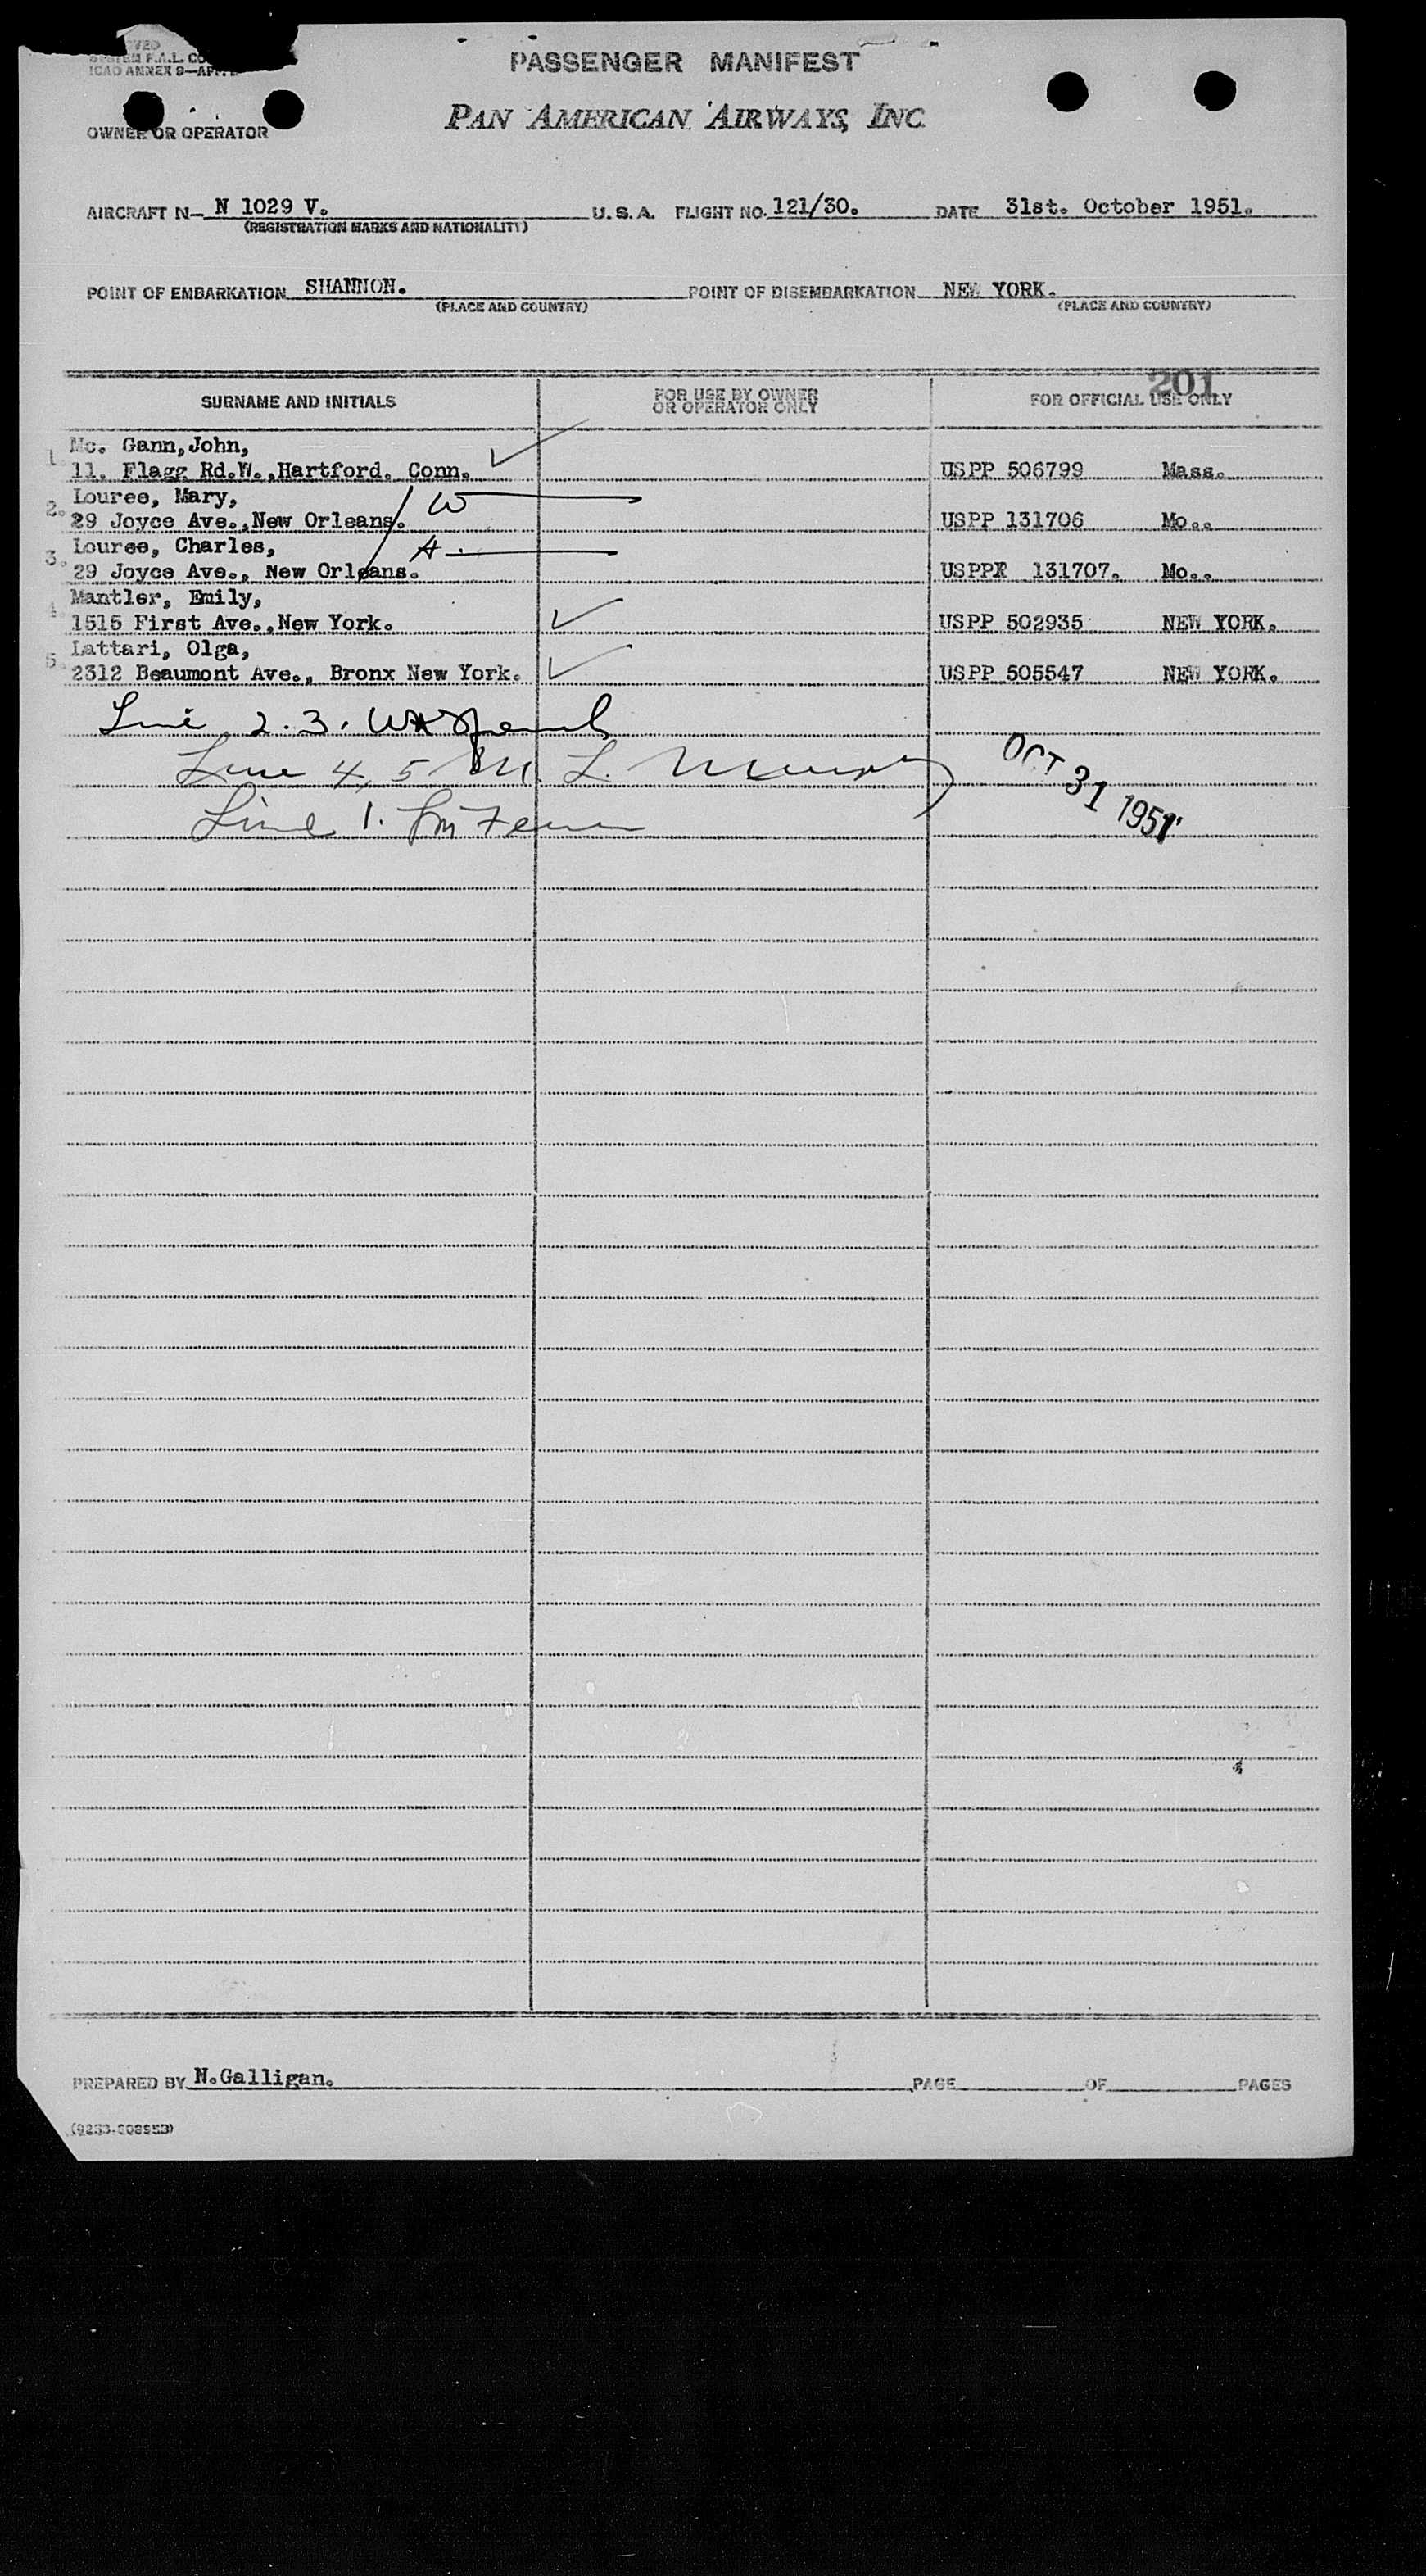 PASSENGER MANIFEST
SYSTEM F.A.L. CO
ICAO ANNEX 9—APP.
PAN AMERICAN AIRWAYS, INC
OWNER OR OPERATOR
AIRCRAFT N— N 1029 V. U.S.A. FLIGHT NO. 121/30. DATE 31st. October 1951.
(REGISTRATION MARKS AND NATIONALITY)
POINT OF EMBARKATION SHANNON. POINT OF DISEMBARKATION NEW YORK.
(PLACE AND COUNTRY) (PLACE AND COUNTRY)
201
SURNAME AND INITIALS FOR USE BY OWNER OR OPERATOR ONLY FOR OFFICIAL USE ONLY
1. Mc. Gann, John,
11. Flagg Rd.W., Hartford. Conn. USPP 506799 Mass.
2. Louree, Mary, W
29 Joyce Ave., New Orleans. USPP 131706 Mo..
3. Louree, Charles, A
29 Joyce Ave., New Orleans. USPPX 131707. Mo..
4. Mantler, Emily,
1515 First Ave., New York. USPP 502935 NEW YORK.
5. Lattari, Olga,
2312 Beaumont Ave., Bronx New York. USPP 505547 NEW YORK.
Line 2.3.
Line 4, 5 M. L. Murphy
OCT 31 1951
Line 1.
PREPARED BY N.Galligan. PAGE OF PAGES